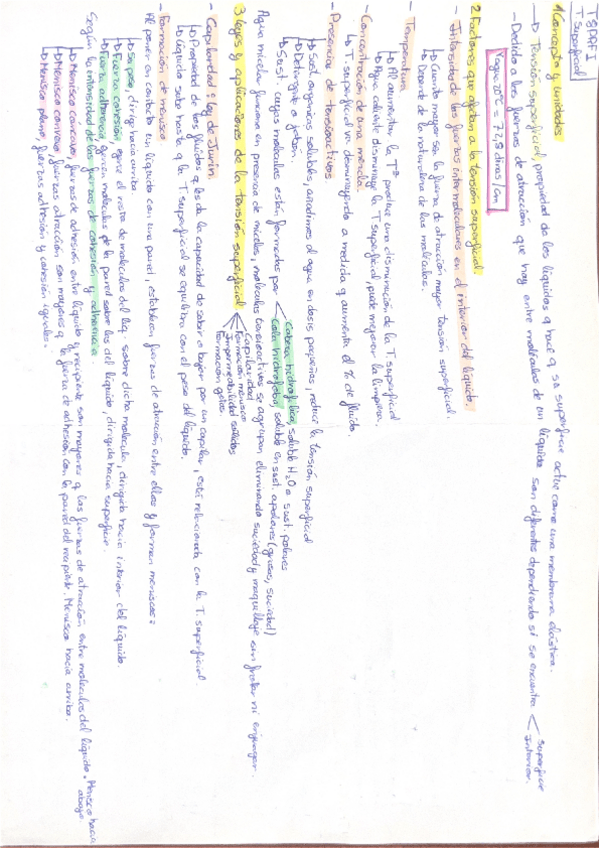 T5 PAFI
T superficial
1 Concepto y unidades
→ Tensión superficial, propiedad de los líquidos q hace q su superficie actúe como una membrana elástica.
- Debido a las fuerzas de atracción que hay entre moléculas de un líquido son diferentes dependiendo si se encuentra < superficie
Interior.
Tagua 20°C = 72,8 dinas/cm
2 Factores que afectan a la tensión superficial.
- Intensidad de las fuerzas intermoleculares en el interior del líquido.
↳ Cuanto mayor sea la fuerza de atracción mayor tensión superficial.
↳ Depende de la naturaleza de las moléculas.
- Temperatura
↳ Al aumentar la Tª produce una disminución de la T. superficial
↳ Agua caliente disminuye la T superficial, puede mejorar la limpieza.
- Concentración de una mezcla.
↳ T. superficial va disminuyendo a medida q aumenta el % de fluido.
- Presencia de tensioactivos
↳ Sust. orgánicas solubles, añadimos al agua en dosis pequeñas, reduce la tensión superficial
↳ Detergente o jabón.
↳ Sust. cuyas moléculas están formadas por < Cabeza hidrofílica, soluble H2O o sust. polares
Cola hidrofobia, soluble en sust. apolares (grasas, suciedad)
Agua micelar funciona en presencia de micelas, moléculas tensioactivas se agrupan eliminando suciedad y maquillaje sin frotar ni enjuagar.
3 Leyes y aplicaciones de la tensión superficial
Capilaridad
Formación menisco
Impermeabilidad
Formación gotas
- Capilaridad: ley de Jurin.
↳ Propiedad de los fluidos q les da capacidad de subir o bajar por un capilar, está relacionada con la T. superficial.
↳ Líquido sube hasta q la T. superficial se equilibra con el peso del líquido.
- Formación de menisco
Al poner en contacto un líquido con una pared, establecen fuerzas de atracción entre ellos y forman meniscos:
↳ Su peso, dirige hacia arriba.
↳ Fuerza cohesión, ejerce el resto de moléculas del líq. sobre dicha molécula, dirigida hacia interior del líquido.
↳ Fuerza adherencia ejercen moléculas de la pared sobre las del líquido, dirigida hacia superficie.
Según la intensidad de las fuerzas de cohesión y adherencia.
↳ Menisco cóncavo, fuerzas de adhesión entre líquido y recipiente son mayores q las fuerzas de atracción entre moléculas del líquido. Menisco hacia
abajo
↳ Menisco convexo, fuerzas atracción son mayores q la fuerza de adhesión con la pared del recipiente. Menisco hacia arriba.
↳ Menisco plano, fuerzas adhesión y cohesión iguales.